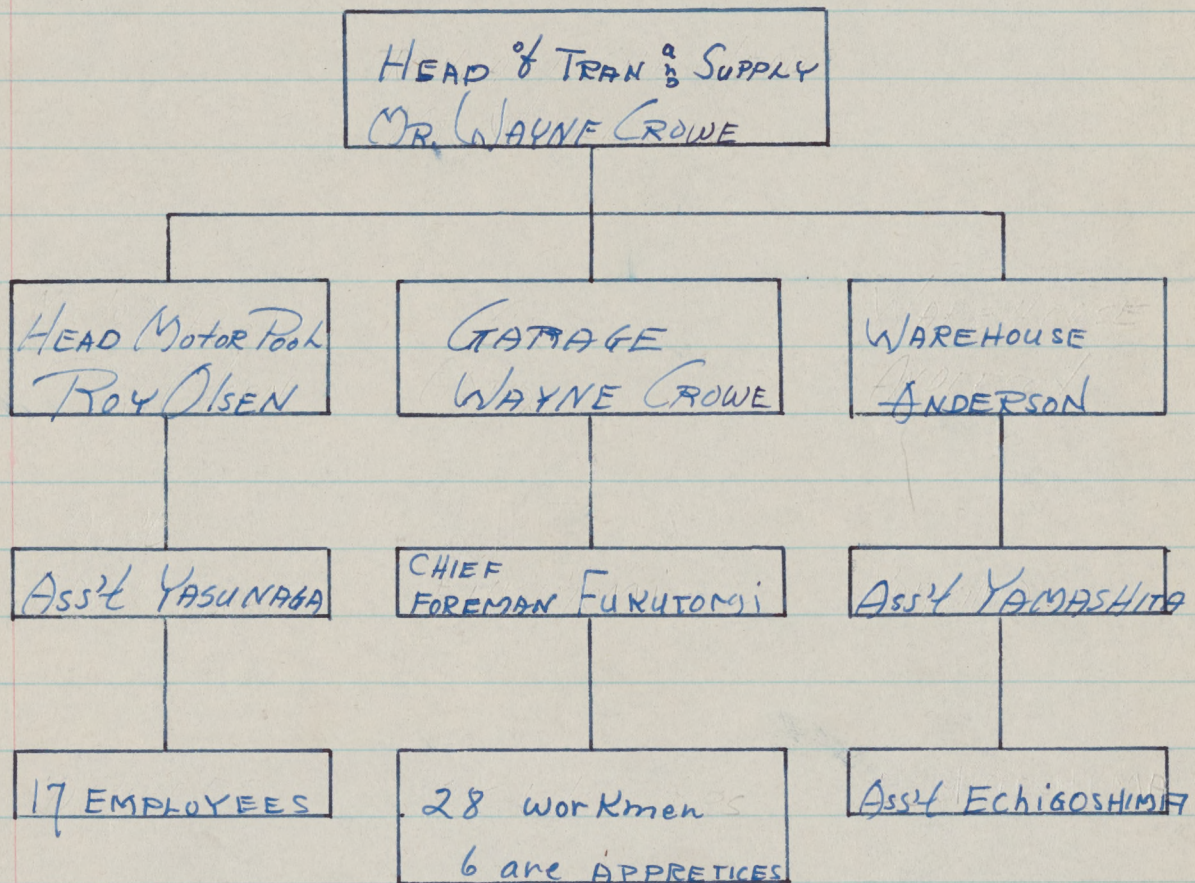 HEAD of TRAN and SUPPLY
MR. WAYNE CROWE
HEAD MOTOR POOL
ROY OLSEN
GARAGE
WAYNE CROWE
WAREHOUSE
ANDERSON
ASS't YASUNAGA
CHIEF
FOREMAN FUKUTOMi
ASS't YAMASHITA
17 EMPLOYEES
28 workmen
6 are APPRETICES
ASS't EchiGOSHIMA